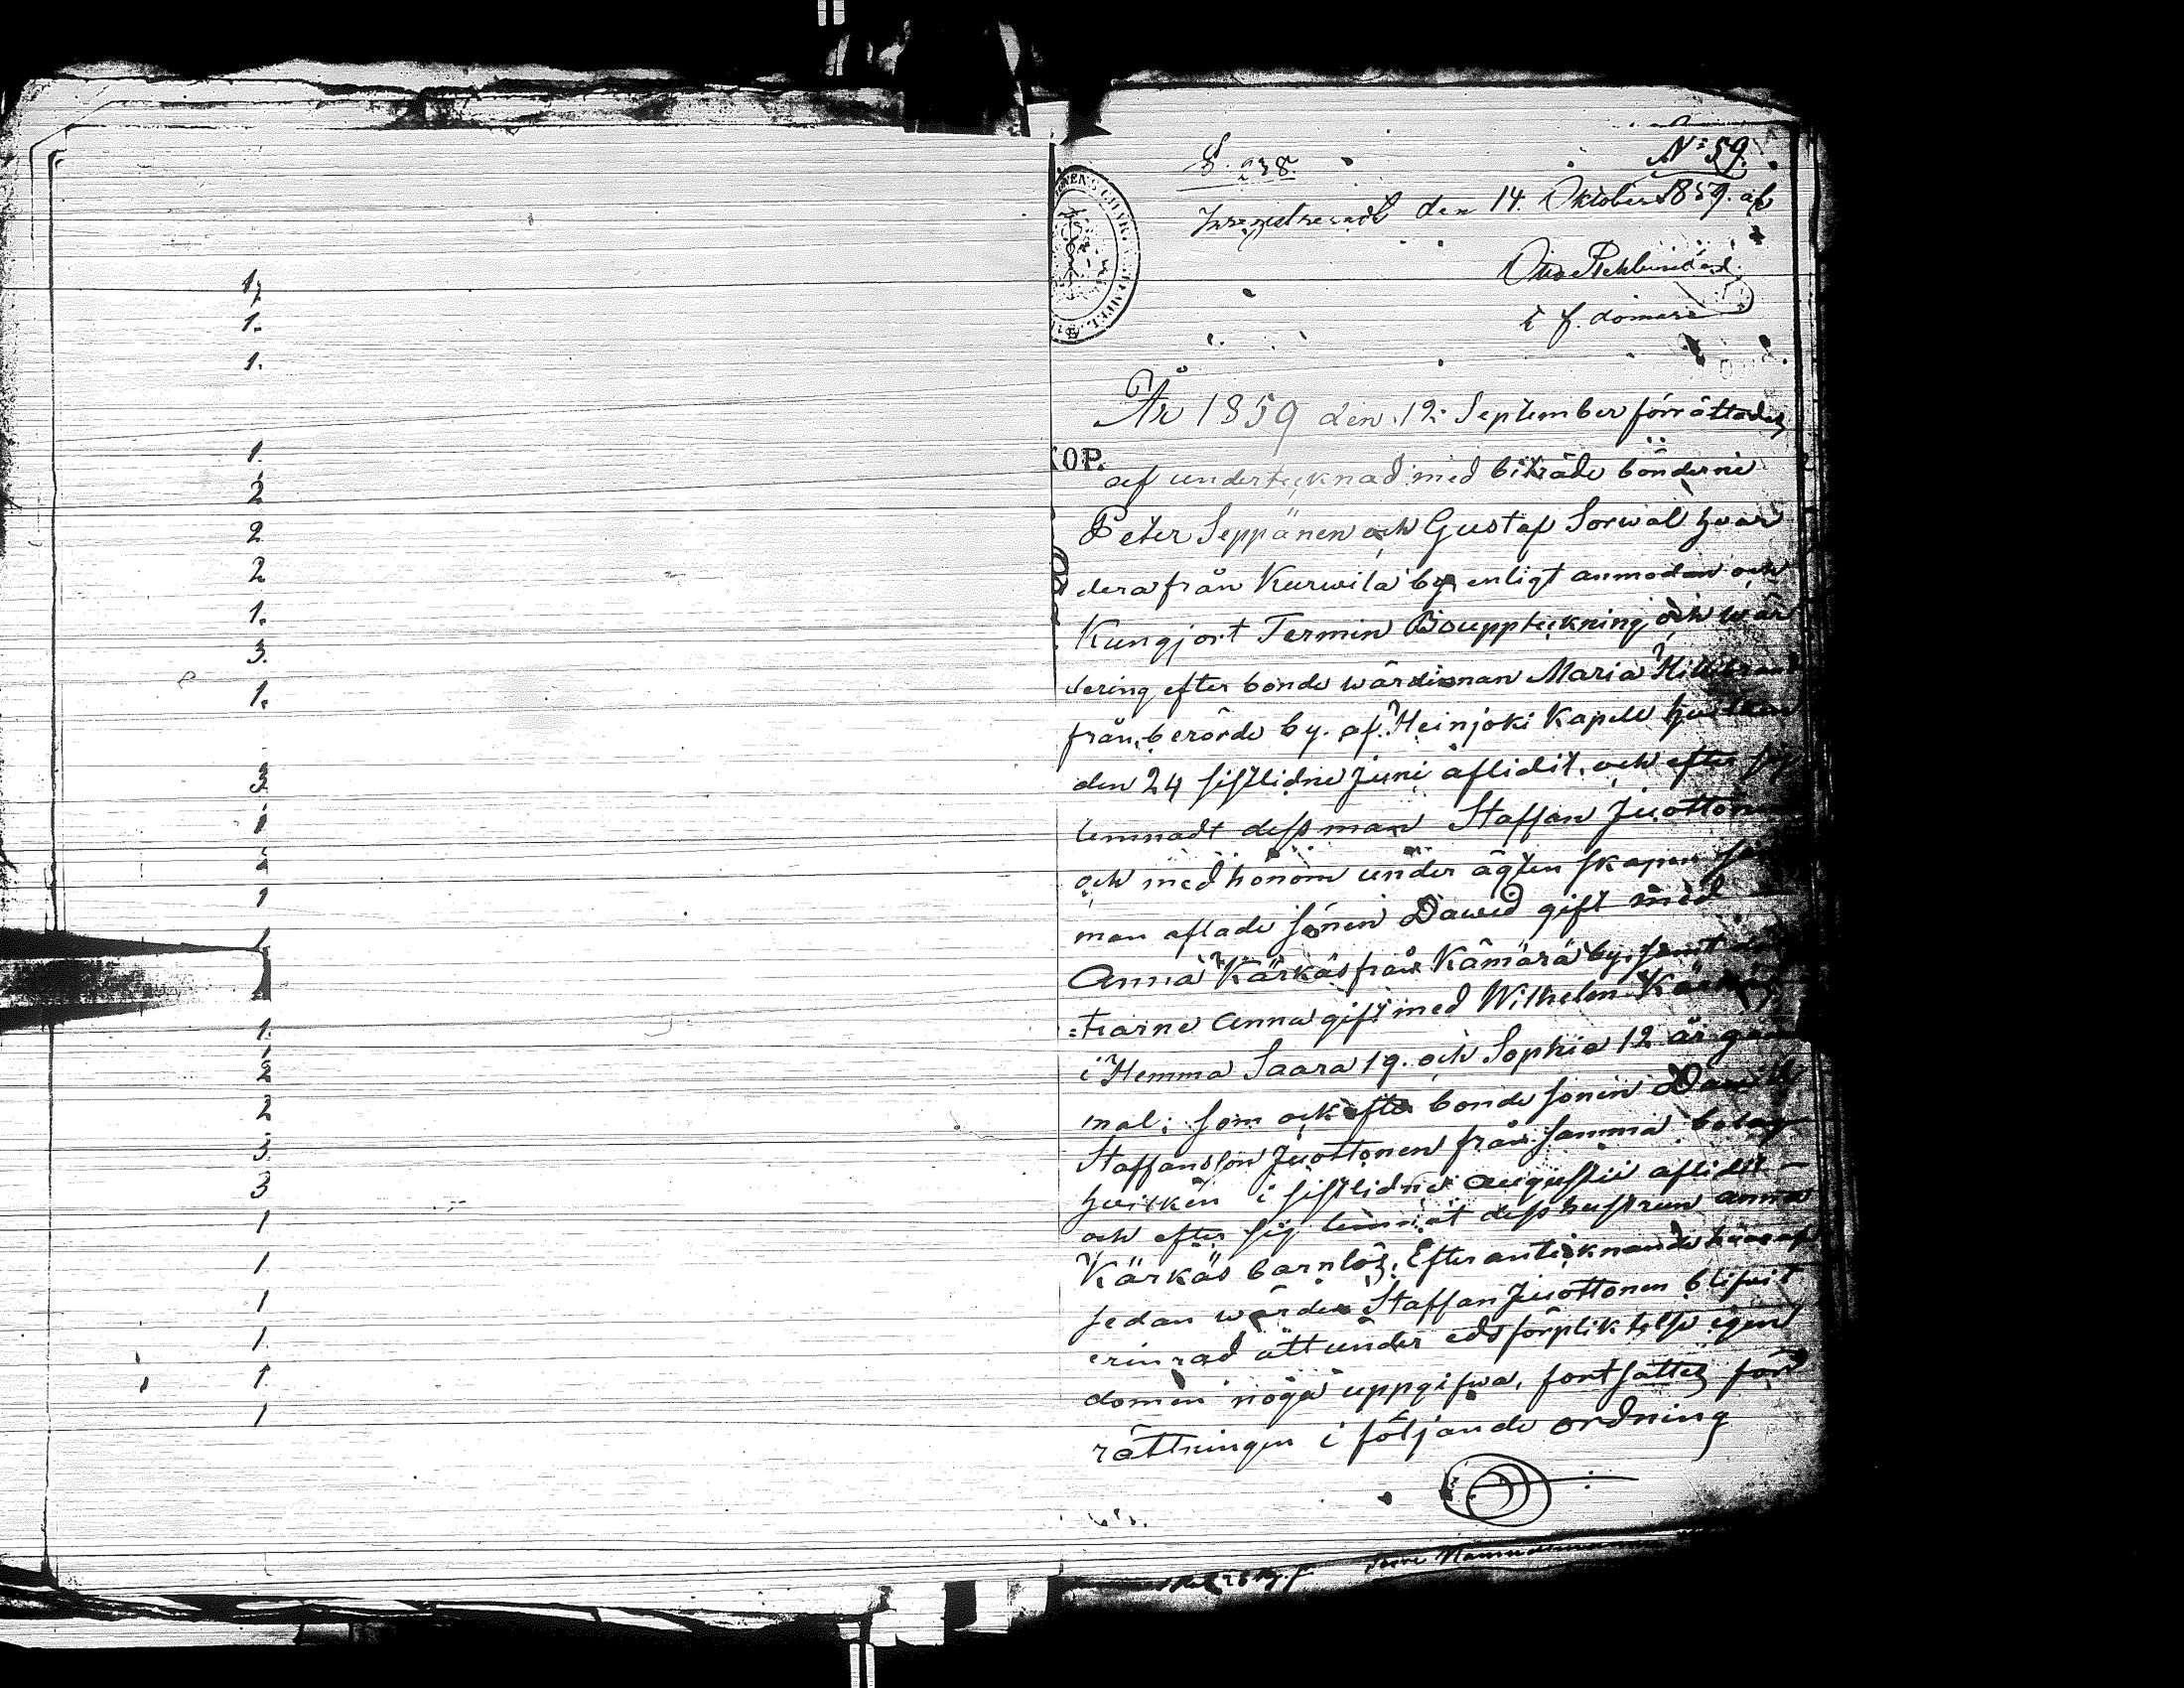 1.
1.
1.
1.
2
2
2
1.
3.
1.
3.
1
2
1
1
1.
1
2
2
3.
3
1
1
1
1.
1.
1
§. 238.
No 59.
den 14. Oktober 1859. af
Otto
t f. domare
År 1859 den 12 September förrättades
KOP.
af undertecknad med biträde bönderne
Peter Seppänen och Gustaf Sorwal hvar
dera från Kurwila by, enligt anmodan och
Kungjort Termin Bouppteckning och wär
dering efter bonde wärdinnan Maria
från berörde by. af Heinjoki Kapell hvilken
den 24 sistlidne Juni aflidit, och efter sig
lemnadt dess man Staffan Juottonen
och med honom under ägtenskapen sam
man aflade sönen Dawid gift med
Anna Kärkäs från Kämärä by, samt
=trarne Anna gift med Wilhelm Kärkäs
i Hemma Saara 19. och Sophia 12 år gam
mal; som ock efter bonde sönen Dawid
Staffansson Juottonen från samma bolag
hvilken i sistlidne Augustii aflidit –
och efter sig lemnat dess hustrun Anna
Kärkäs barnlös. Efter antecknande häraf
sedan wärden Staffan Juottonen blifvit
erinrad att under eds förpliktelse egen
domen noga uppgifwa, fortsattes för
rättningen i följande ordning